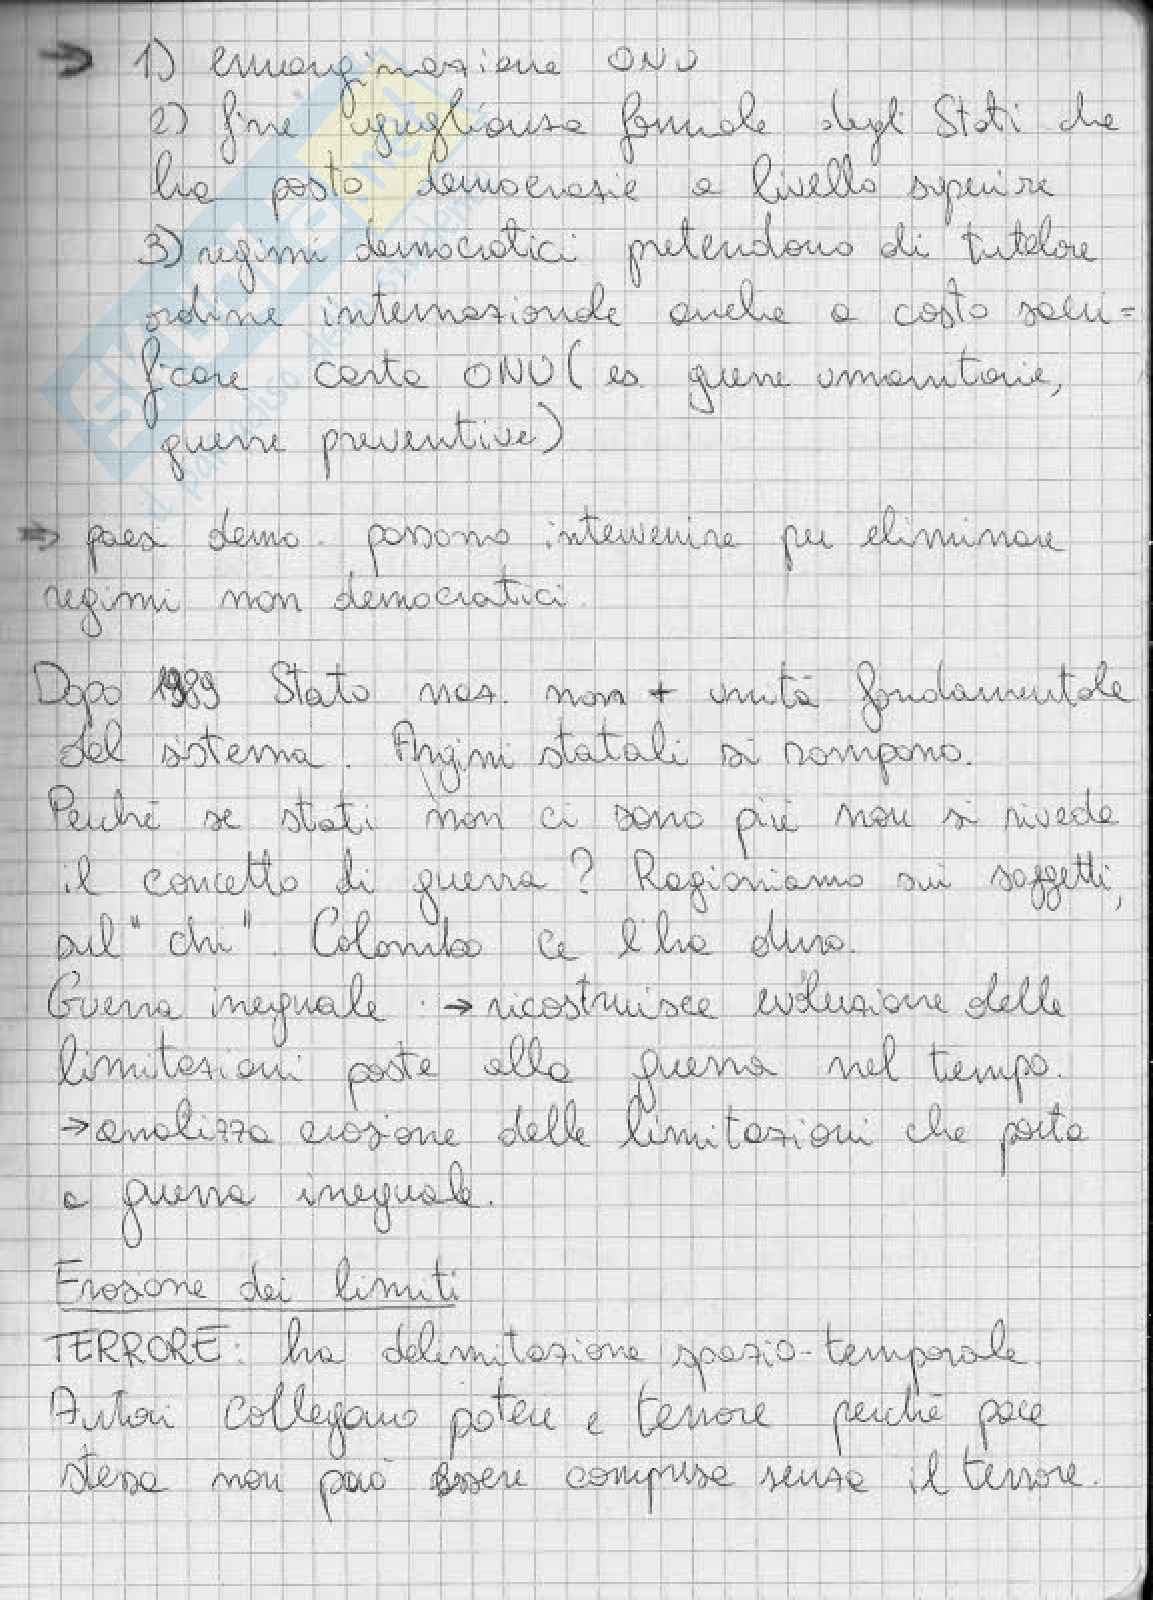 → 1) emarginazione ONU
2) fine uguaglianza formale degli Stati che
ha posto democrazie a livello superiore
3) regimi democratici pretendono di tutelare
ordine internazionale anche a costo sacri=
ficare carta ONU (es guerre umanitarie,
guerre preventive)
⇒ paesi demo. possono intervenire per eliminare
regimi non democratici.
Dopo 1989 Stato naz. non + unità fondamentale
del sistema. Argini statali si rompono.
Perché se stati non ci sono più non si rivede
il concetto di guerra? Ragioniamo sui soggetti,
sul "chi". Colombo ce l'ha
Guerra ineguale : → ricostruisce evoluzione delle
limitazioni poste alla guerra nel tempo.
→ analizza erosione delle limitazioni che porta
a guerra ineguale.
Erosione dei limiti
TERRORE: ha delimitazione spazio-temporale.
Autori collegano potere e terrore perché pace
stessa non può essere compresa senza il terrore.
skuola.net
il paradiso dello studente